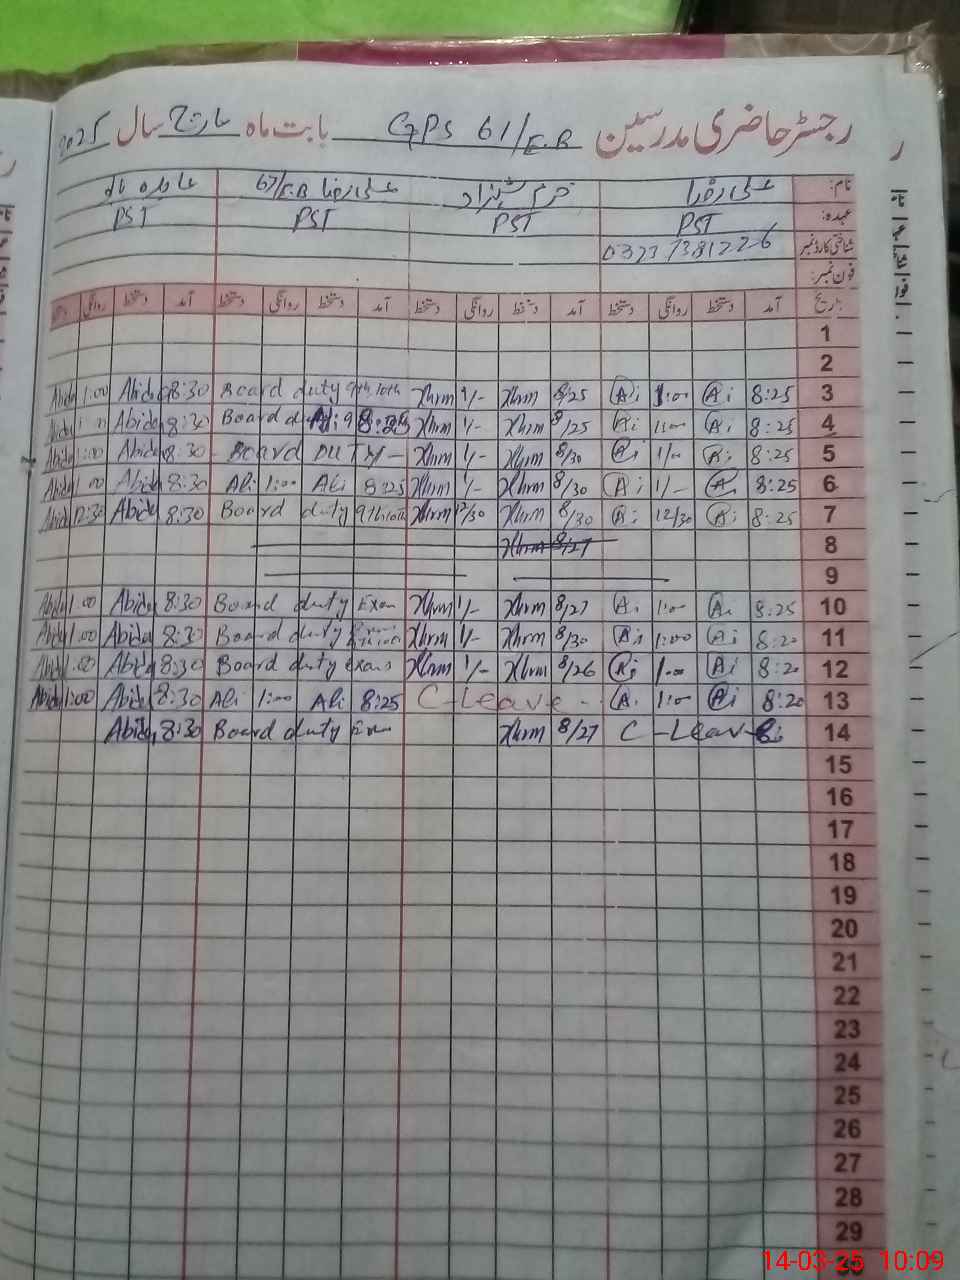 رجسٹر حاضری مدرسین GPS 61/E.B بابت ماہ مارچ سال 2025
نام: علی رضا خرم شہزاد علی رضا 67/E.B عابدہ
عہدہ: PST PST PST PST
شناختی کارڈ نمبر
فون نمبر:
تاریخ آمد دستخط روانگی دستخط آمد دستخط روانگی دستخط آمد دستخط روانگی دستخط آمد دستخط روانگی
1
2
3 8:25 Ai 1:00 Ai 8/25 Xhrm 1/- Xhrm Board duty 9th 10th 8:30 Abida 1:00 Abida
4 8:25 Ai 1:00 Ai 8/25 Xhrm 1/- Xhrm Board 8:30 Abida Abida
5 8:25 Ai 1/00 Ai 8/30 Xhrm 1/- Xhrm Board DUTY 8:30 Abida 1:00 Abida
6 8:25 Ai 1/- Ai 8/30 Xhrm 1/- Xhrm 8:25 Ali 1:00 Ali 8:30 Abida 1:00 Abida
7 8:25 Ai 12/30 Ai 8/30 Xhrm 12/30 Xhrm Board duty 9th 10th 8:30 Abida 12:30 Abida
8 8/27 Xhrm
9
10 8:25 Ai 1:00 Ai 8/27 Xhrm 1/- Xhrm Board duty Exam 8:30 Abida 1:00 Abida
11 8:20 Ai 1:00 Ai 8/30 Xhrm 1/- Xhrm Board duty 8:30 Abida 1:00 Abida
12 8:20 Ai 1:00 Ai 8/26 Xhrm 1/- Xhrm Board duty Exam 8:30 Abida 1:00 Abida
13 8:20 Ai 1:00 Ai C-Leave 8:25 Ali 1:00 Ali 8:30 Abida 1:00 Abida
14 C-Leave 8/27 Xhrm Board duty Exam 8:30 Abida
15
16
17
18
19
20
21
22
23
24
25
26
27
28
29
14-03-25 10:09